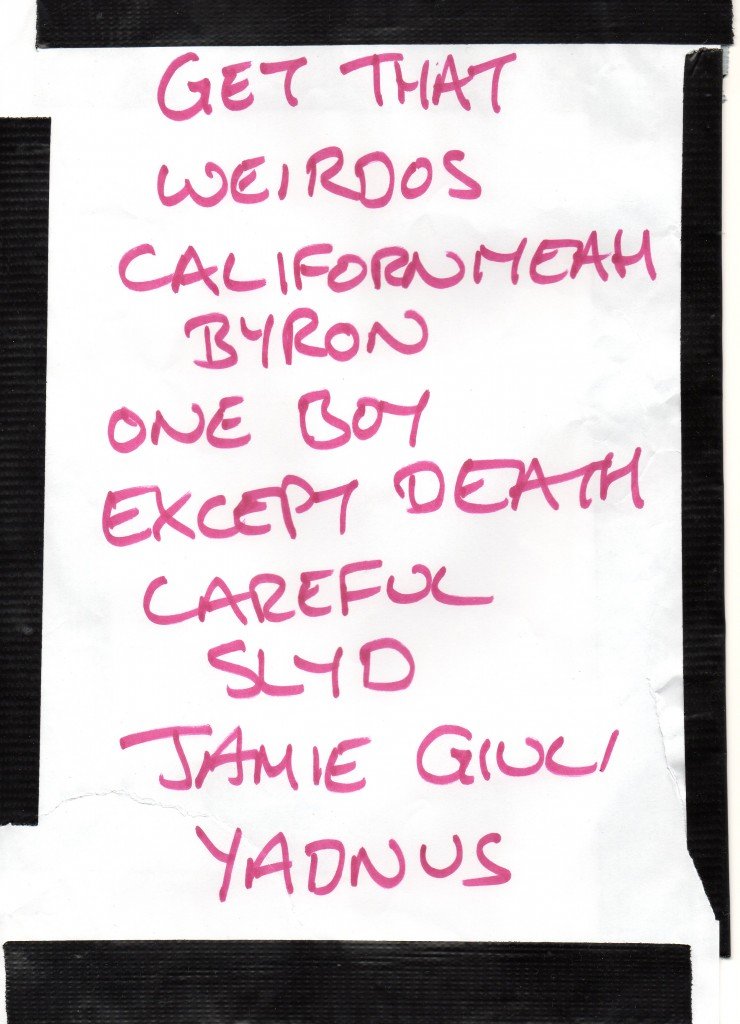 GET THAT
WEIRDOS
CALIFORNIYEAH
BYRON
ONE BOY
EXCEPT DEATH
CAREFUL
SLYD
JAMIE GIULI
YADNUS